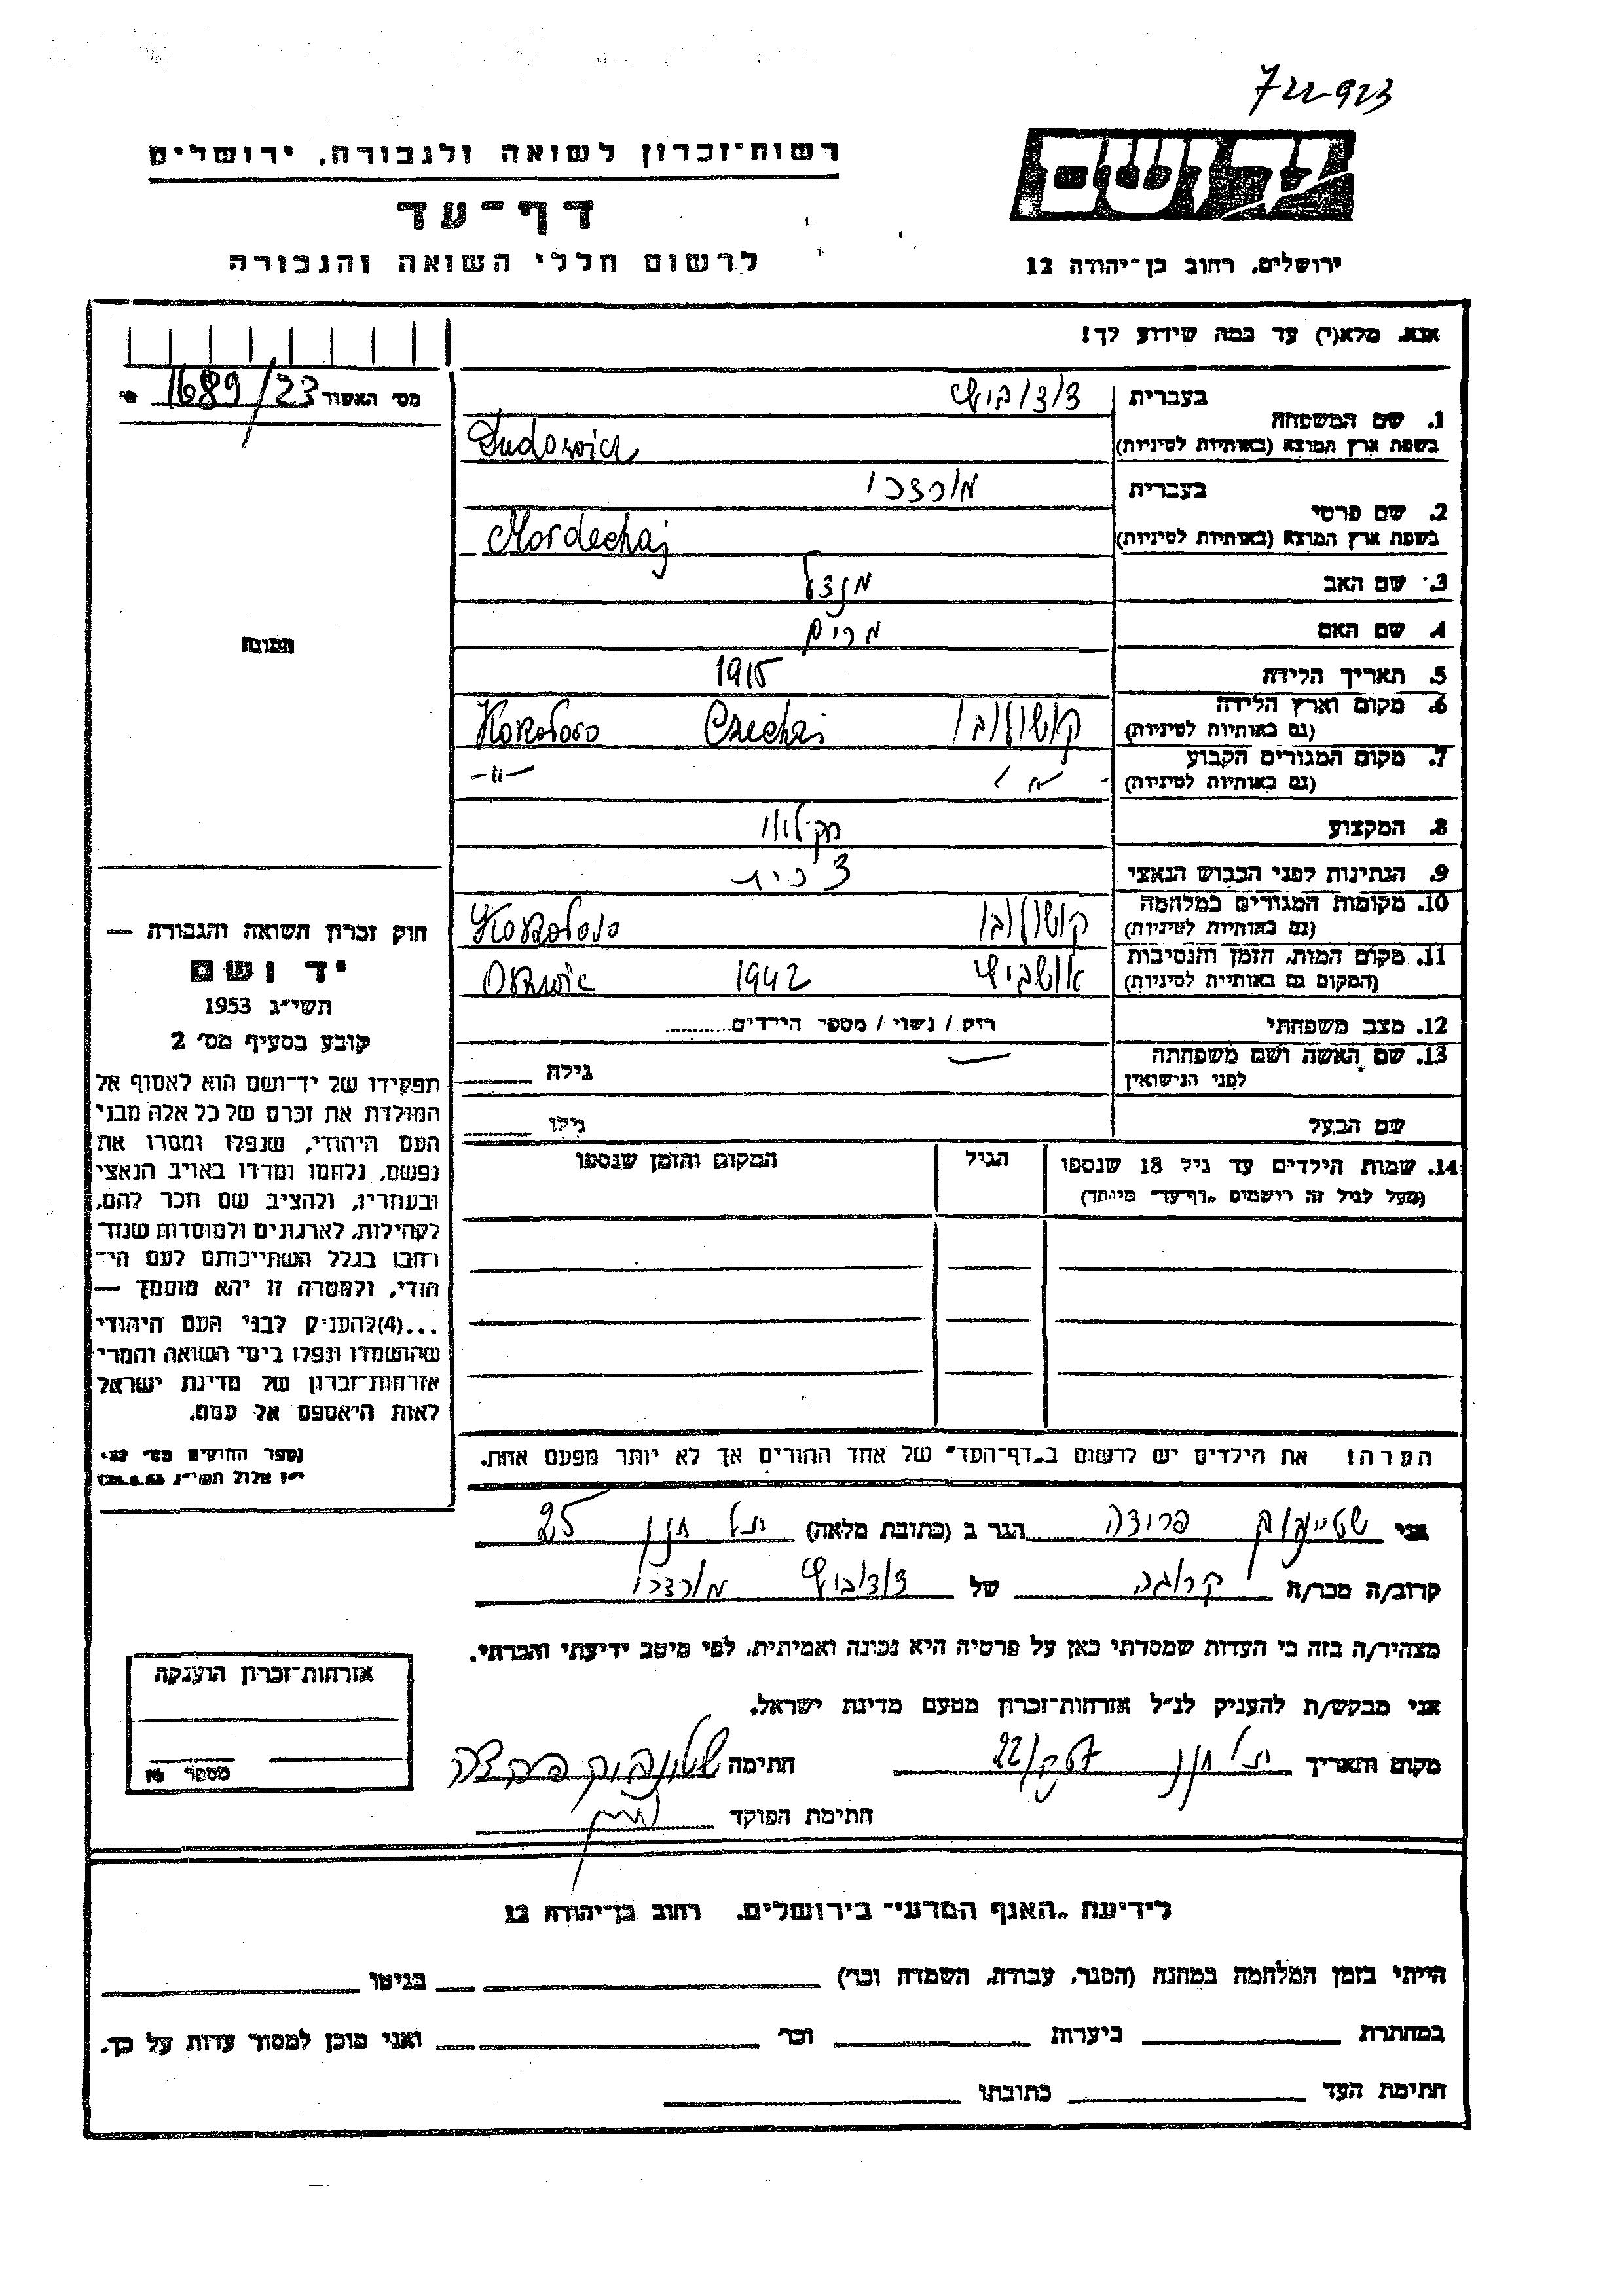 722923
רשות־זכרון לשואה ולגבורה, ירושלים
דף־עד
לרשום חללי השואה והגבורה
יד ושם
ירושלים, רחוב בן־יהודה 12
אנא, מלא(י) עד כמה שידוע לך!
מס' האשור 1689/23
1. שם המשפחה בעברית דודוביץ
בשפת ארץ המוצא (באותיות לטיניות) Dudowicz
2. שם פרטי בעברית מורדכי
בשפת ארץ המוצא (באותיות לטיניות) Mordechaj
3. שם האב מנדל
4. שם האם מרים
5. תאריך הלידה 1915
6. מקום וארץ הלידה (גם באותיות לטיניות) Czechaj
7. מקום המגורים הקבוע (גם באותיות לטיניות) -"-
8. המקצוע חקלאי
9. הנתינות לפני הכבוש הנאצי
10. מקומות המגורים במלחמה (גם באותיות לטיניות)
11. מקום המות, הזמן והנסיבות (המקום גם באותיות לטיניות) אושביץ 1942
12. מצב משפחתי רוק / נשוי / מספר הילדים
13. שם האשה ושם משפחתה לפני הנישואין גילה
שם הבעל גילו
14. שמות הילדים עד גיל 18 שנספו הגיל המקום והזמן שנספו
(מעל לגיל זה רישמים "דף־עד" מיוחד)
הערה! את הילדים יש לרשום ב"דף־העד" של אחד ההורים אך לא יותר מפעם אחת.
התמונה
חוק זכרון השואה והגבורה —
יד ושם
תשי"ג 1953
קובע בסעיף מס' 2
תפקידו של יד־ושם הוא לאסוף אל
המולדת את זכרם של כל אלה מבני
העם היהודי, שנפלו ומסרו את
נפשם, נלחמו ומרדו באויב הנאצי
ובעוזריו, ולהציב שם וזכר להם,
לקהילות, לארגונים ולמוסדות שנח־
רבו בגלל השתייכותם לעם הי־
הודי, ולמטרה זו יהא מוסמך —
...(4)להעניק לבני העם היהודי
שהושמדו ונפלו בימי השואה והמרי
אזרחות־זכרון של מדינת ישראל
לאות היאספם אל עמם.
אני פרידה הגר ב (כתובת מלאה) תל חנן 25
קרוב/ה מכר/ה קרובה של דודוביץ מורדכי
מצהיר/ה בזה כי העדות שמסרתי כאן על פרטיה היא נכונה ואמיתית, לפי מיטב ידיעתי והכרתי.
אני מבקש/ת להעניק לנ"ל אזרחות־זכרון מטעם מדינת ישראל.
מקום ותאריך תל חנן חתימה
חתימת הפוקד
אזרחות־זכרון הוענקה
מספר №
לידיעת "האגף המדעי" בירושלים, רחוב בן־יהודה 12
הייתי בזמן המלחמה במחנה (הסגר, עבודה, השמדה וכו') בגיטו
במחתרת ביערות וכו' ואני מוכן למסור עדות על כך.
חתימת העד כתובתו